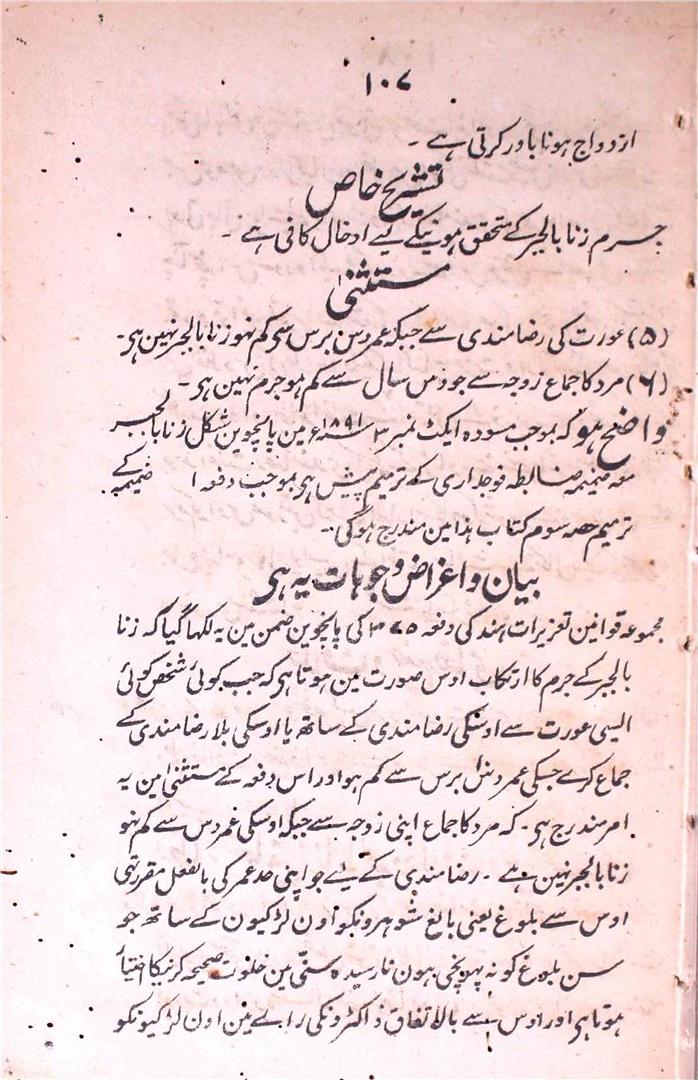 ۱۰۷
ازدواج ہونا باور کرتی ہے ۔
تشریح خاص
جرم زنا بالجبر کے متحقق ہونیکے لیے ادخال کافی ہے ۔
مستثنیٰ
(۵) عورت کی رضامندی سے جبکہ عمر دس برس سی کم نہو زنا بالجبر نہین ہی۔
(۶) مرد کا جماع زوجہ سے جو دس سال سے کم ہو جرم نہین ہی ۔
واضح ہو کہ بموجب مسودہ ایکٹ نمبر ۳ سنہ ۱۸۹۱ء مین پانچوین شکل زنا بالجبر
معہ ضمیمہ ضابطہ فوجداری کے ترمیم پیش ہی بموجب دفعہ ۱ ضمیمہ کے
ترمیم حصہ سوم کتاب ہذا مین مندرج ہوگی ۔
بیان و اغراض و جوہات یہ ہی
مجموعہ قوانین تعزیرات ہند کی دفعہ ۳۷۵ کی پانچوین ضمن مین یہ لکھا گیا کہ زنا
بالجبر کے جرم کا ارتکاب اوس صورت مین ہوتا ہی کہ جب کوئی شخص کوئی
ایسی عورت سے اوسکی رضامندی کے ساتھ یا اوسکی بلا رضامندی کے
جماع کرے جسکی عمر دس برس سے کم ہو اور اس دفعہ کے مستثنیٰ مین یہ
امر مندرج ہی ۔ کہ مرد کا جماع اپنی زوجہ سے جبکہ اوسکی عمر دس سے کم نہو
زنا بالجبر نہین ہے ۔ رضامندی کے لیے جو اپنی حد عمر کی بالفعل مقرر تھی
اوس سے بلوغ یعنی بالغ شوہرونکو اون لڑکیون کے ساتھ جو
سن بلوغ کو نہ پہونچی ہون نارسیدہ سنی مین خلوت صحیحہ کرنیکا اختیار
ہوتا ہی اور اوس سے بالاتفاق ڈاکٹرونکی رائے مین اون لڑکیونکو